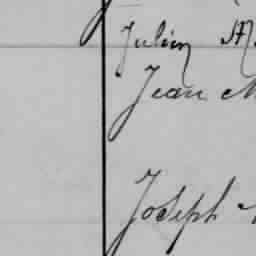 Julien M
Jean M
Joseph